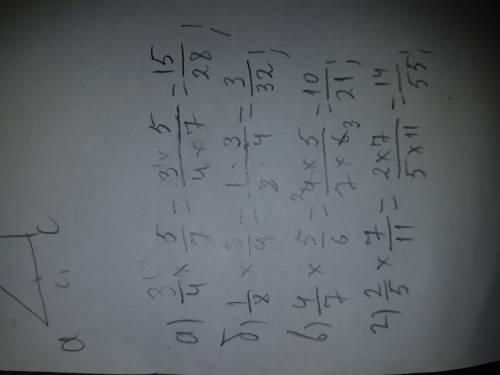 a
C
C₁
а) 3/4 × 5/7 = 3 × 5 / 4 × 7 = 15/28;
б) 1/8 × 3/4 = 1 · 3 / 8 · 4 = 3/32;
в) 4/7 × 5/6 = ²4 × 5 / 7 × 6₃ = 10/21;
г) 2/5 × 7/11 = 2 × 7 / 5 × 11 = 14/55;